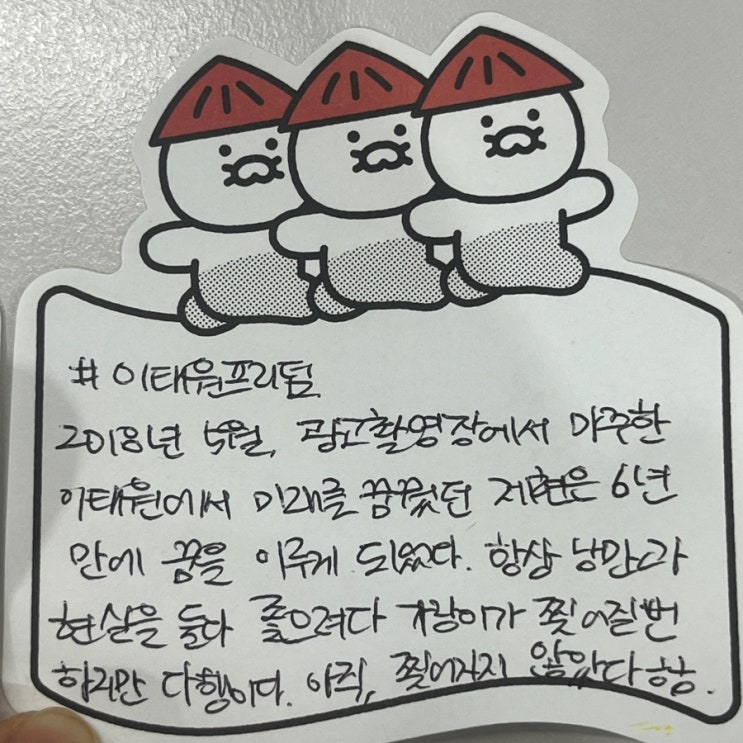 # 이태원프리덤
2018년 5월, 광고촬영장에서 마주한
이태원에서 미래를 꿈꿨던 제현은 6년
만에 꿈을 이루게 되었다. 항상 낭만과
현실을 둘다 좇으려다 가랑이가 찢어질번
하지만 다행이다. 아직, 찢어지지 않았다 항.